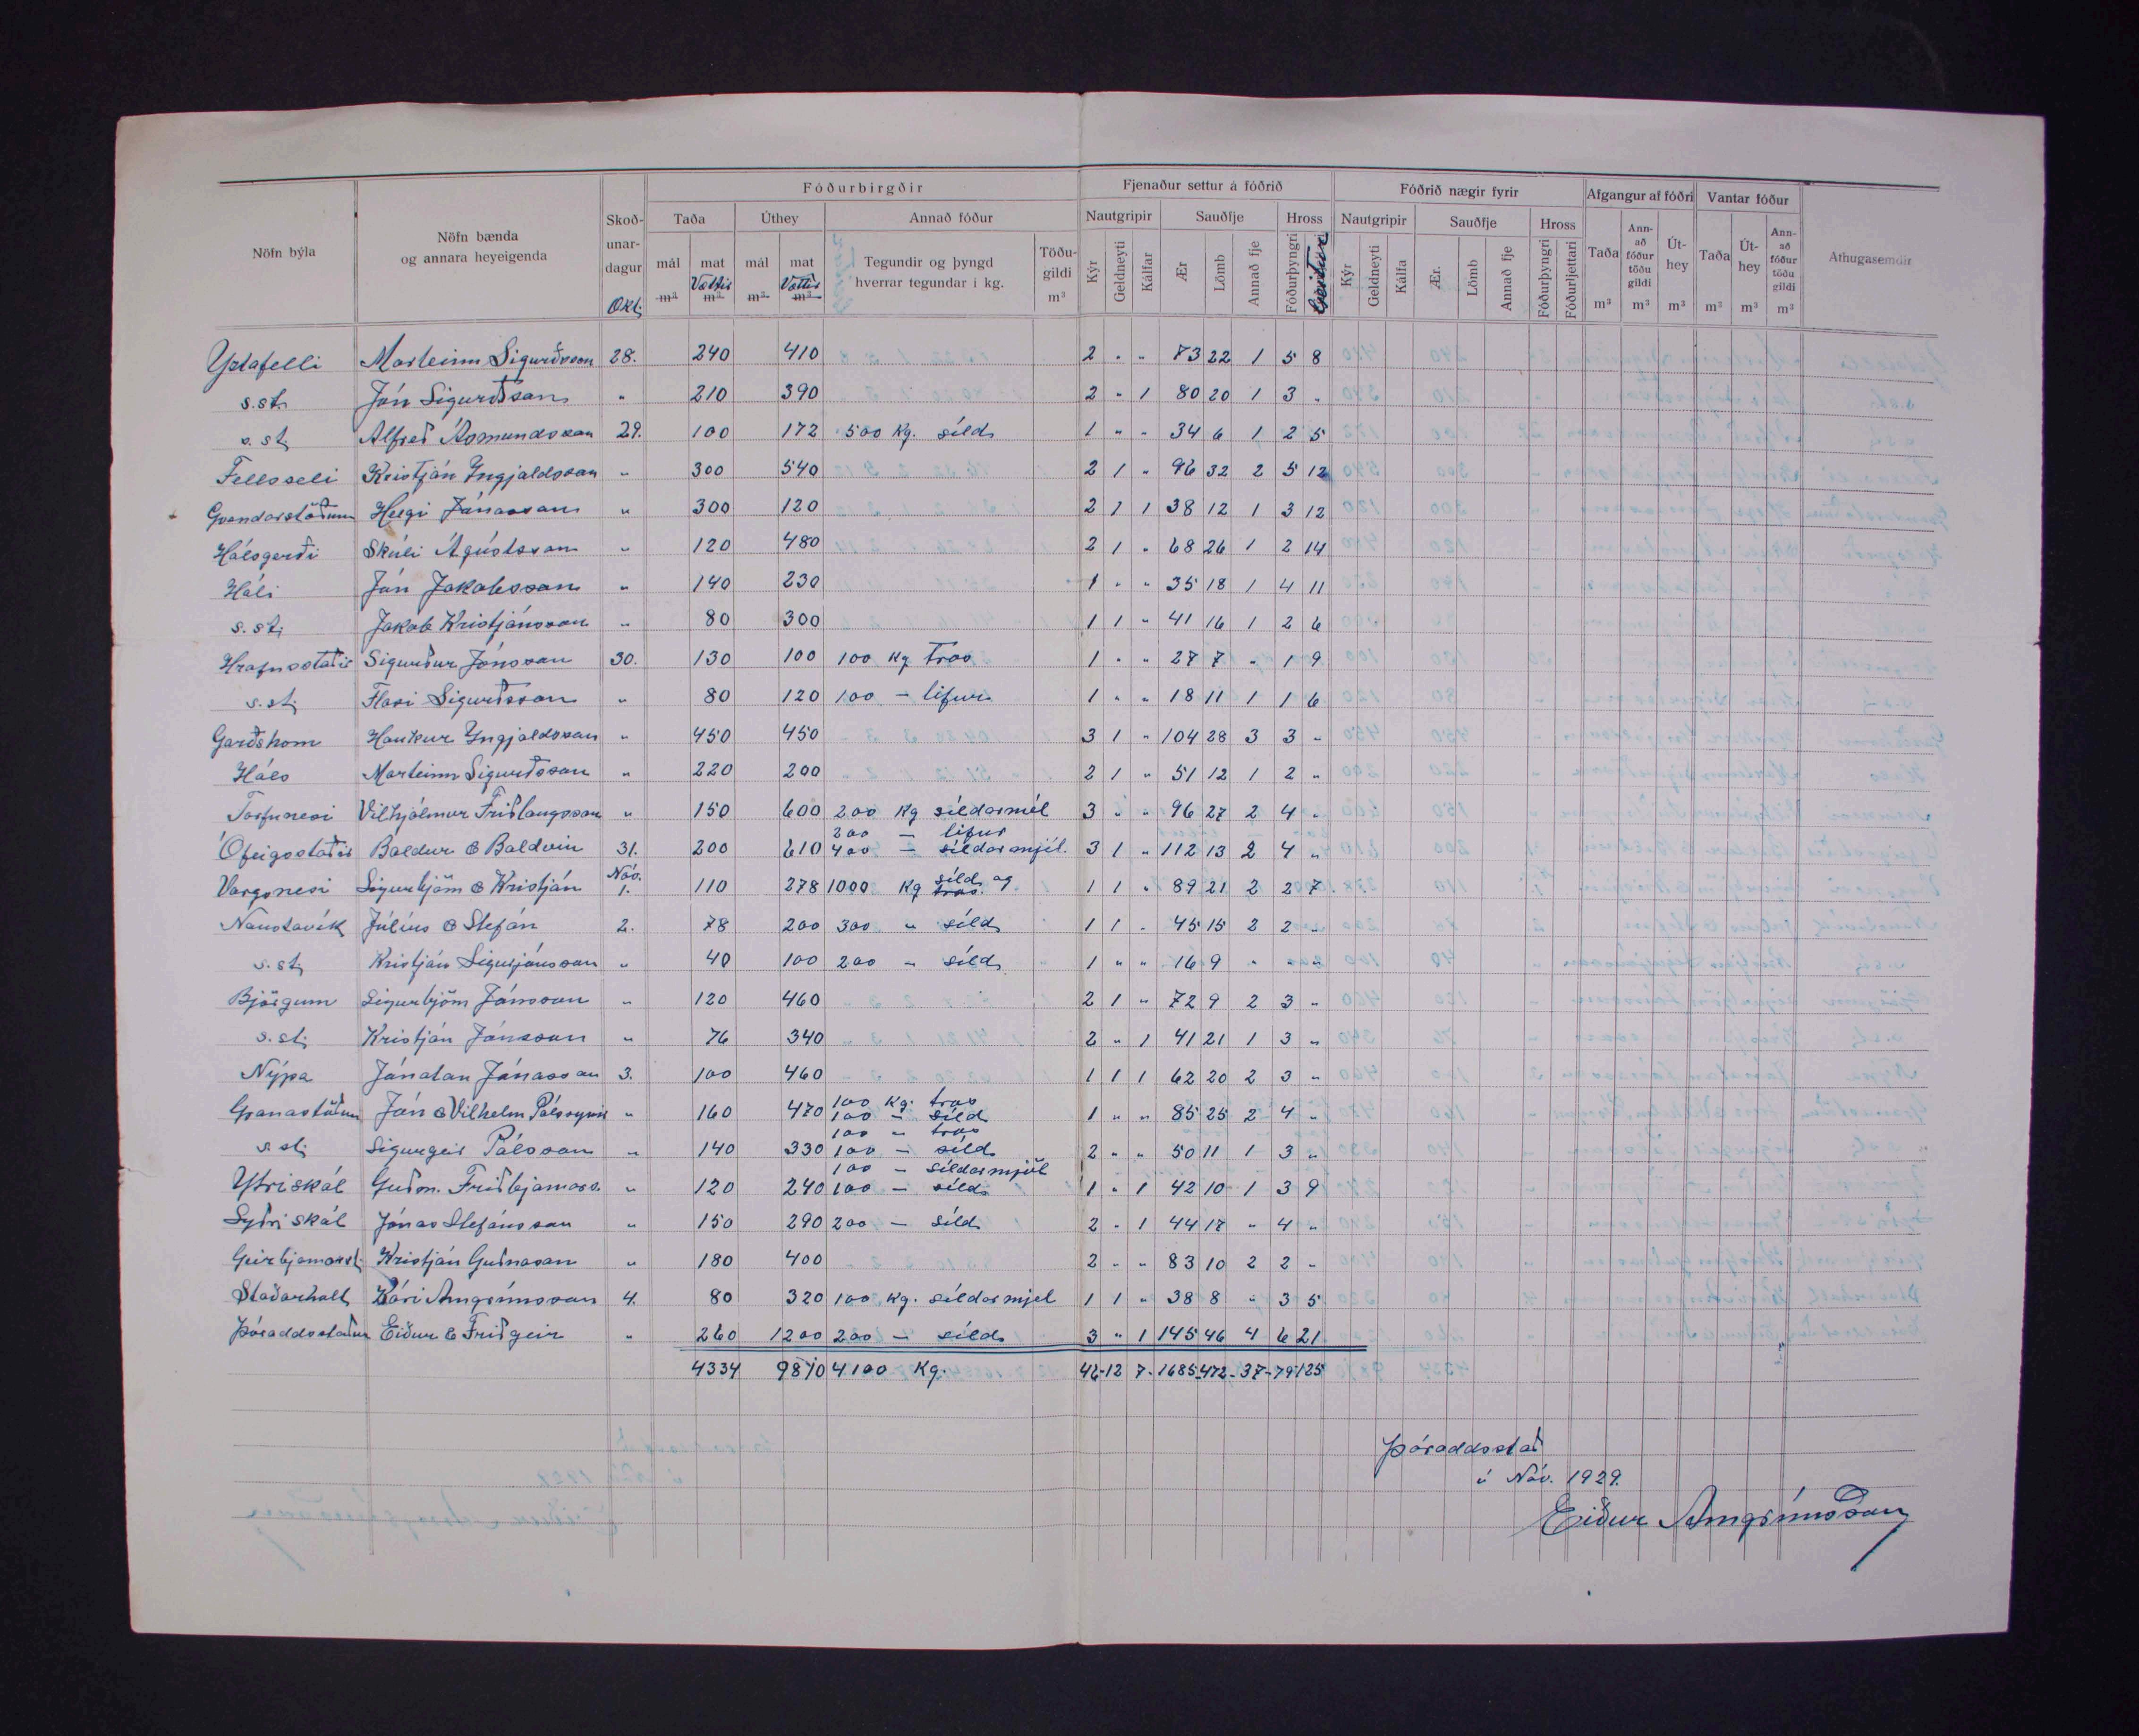 Fóðurbirgðir Fjenaður settur á fóðrið Fóðrið nægir fyrir Afgangur af fóðri Vantar fóður
Nöfn býla Nöfn bænda og annara heyeigenda Skoðunardagur Taða Úthey Annað fóður Nautgripir Sauðfje Hross Nautgripir Sauðfje Hross Taða Annað fóður töðu gildi Úthey Taða Úthey Annað fóður töðu gildi Athugasemdir
mál mat mál mat Tegundir og þyngd hverrar tegundar í kg. Töðugildi m³ Kýr Geldneyti Kálfar Ær Lömb Annað fje Fóðurþyngri Kýr Geldneyti Kálfa Ær. Lömb Annað fje Fóðurþyngri Fóðurljettari m³ m³ m³ m³ m³ m³
Okt. m³ Vættir m³ m³ Vættir m³ Gentur
Ystafelli Marteinn Sigurðsson 28. 240 410 2 " " 73 22 1 5 8
s.st. Jón Sigurðsson " 210 390 2 " 1 80 20 1 3 "
s.st. Alfreð Ásmundsson 29. 100 172 500 Kg. síld 1 " " 34 6 1 2 5
Fellsseli Kristján Ingjaldsson " 300 540 2 1 " 96 32 2 5 12
Gvendarstöðum Helgi Jónasson " 300 120 2 1 1 38 12 1 3 12
Hálsgerði Skúli Ágústsson " 120 480 2 1 " 68 26 1 2 14
Háli Jón Jakobsson " 140 230 1 " " 35 18 1 4 11
s.st. Jakob Kristjánsson " 80 300 1 1 " 41 16 1 2 6
Hrafnsstaðir Sigurður Jónsson 30. 130 100 100 Kg Tros 1 " " 27 7 " 1 9
s.st. Flosi Sigurðsson " 80 120 100 – lifur 1 " " 18 11 1 1 6
Garðshorn Haukur Ingjaldsson " 450 450 3 1 " 104 28 3 3 "
Háls Marteinn Sigurðsson " 220 200 2 1 " 51 12 1 2 "
Torfunesi Vilhjálmur Friðlaugsson " 150 600 200 Kg síldarmél 3 " " 96 27 2 4 "
200 – lifur
Ófeigsstaðir Baldur & Baldvin 31. 200 610 400 – síldarmjöl. 3 1 " 112 13 2 4 "
Vargsnesi Sigurbjörn & Kristján Nóv. 1. 110 278 1000 Kg síld og tros. 1 1 " 89 21 2 2 7
Naustavík Júlíus & Stefán 2. 78 200 300 " síld 1 1 " 45 15 2 2 "
s.st. Kristján Sigurjónsson " 40 100 200 – síld 1 " " 16 9 " " "
Björgum Sigurbjörn Jónsson " 120 460 2 1 " 72 9 2 3 "
s.st. Kristján Jónsson " 76 340 2 " 1 41 21 1 3 "
Nýpá Jónatan Jónasson 3. 100 460 1 1 1 62 20 2 3 "
100 Kg. tros
Granastöðum Jón & Vilhelm Pálssynir " 160 470 100 – síld 1 " " 85 25 2 4 "
100 – tros
s.st. Sigurgeir Pálsson " 140 330 100 – síld 2 " " 50 11 1 3 "
100 – síldarmjöl
Ytriskál Guðm. Friðbjarnars. " 120 240 100 – síld 1 " 1 42 10 1 3 9
Syðriskál Jónas Stefánsson " 150 290 200 – síld 2 " 1 44 17 " 4 "
Geirbjarnarst. Kristján Guðnason " 180 400 2 " " 83 10 2 2 "
Staðarholt Kári Arngrímsson 4. 80 320 100 Kg. síldarmjöl 1 1 " 38 8 " 3 5
Þóroddsstaður Eiður & Friðgeir " 260 1200 200 – síld 3 " 1 145 46 4 6 21
4334 9810 4100 Kg. 46-12 7-1685-472-37-79-125
Þóroddsstað
í Nóv. 1929.
Eiður Arngrímsson